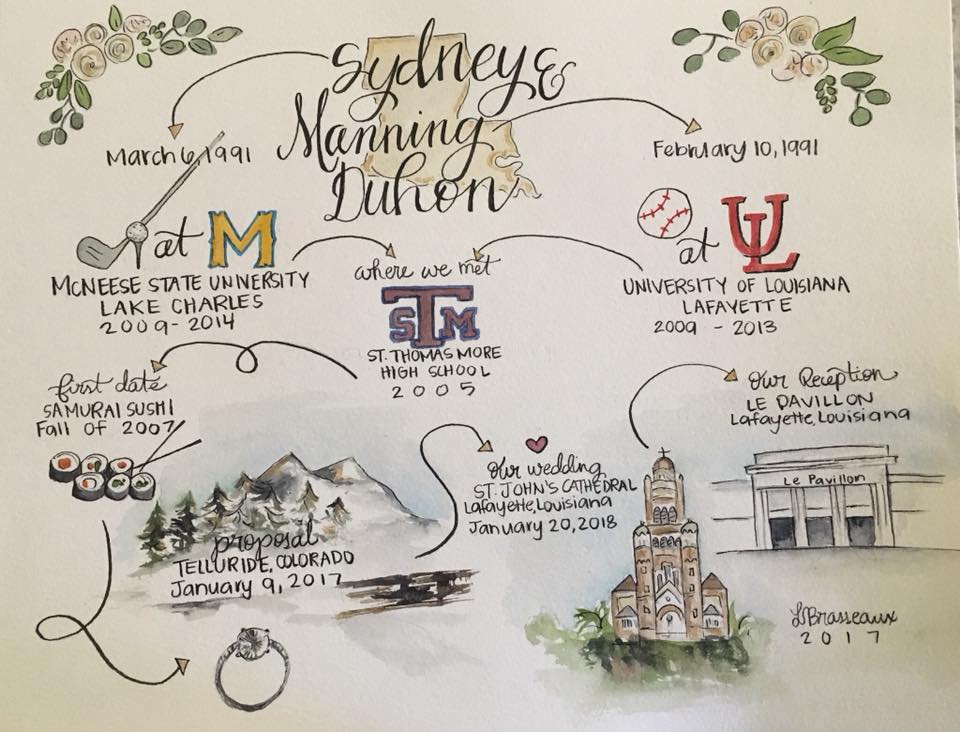 Sydney &
Manning
Duhon
March 6, 1991
February 10, 1991
at M
McNEESE STATE UNIVERSITY
LAKE CHARLES
2009-2014
where we met
STM
ST. THOMAS MORE
HIGH SCHOOL
2005
at UL
UNIVERSITY OF LOUISIANA
LAFAYETTE
2009 - 2013
first date
SAMURAI SUSHI
Fall of 2007
proposal
TELLURIDE, COLORADO
January 9, 2017
Our wedding
ST. JOHN'S CATHEDRAL
Lafayette, Louisiana
January 20, 2018
Our Reception
LE PAVILLON
Lafayette, Louisiana
Le Pavillon
LBrasseaux
2017